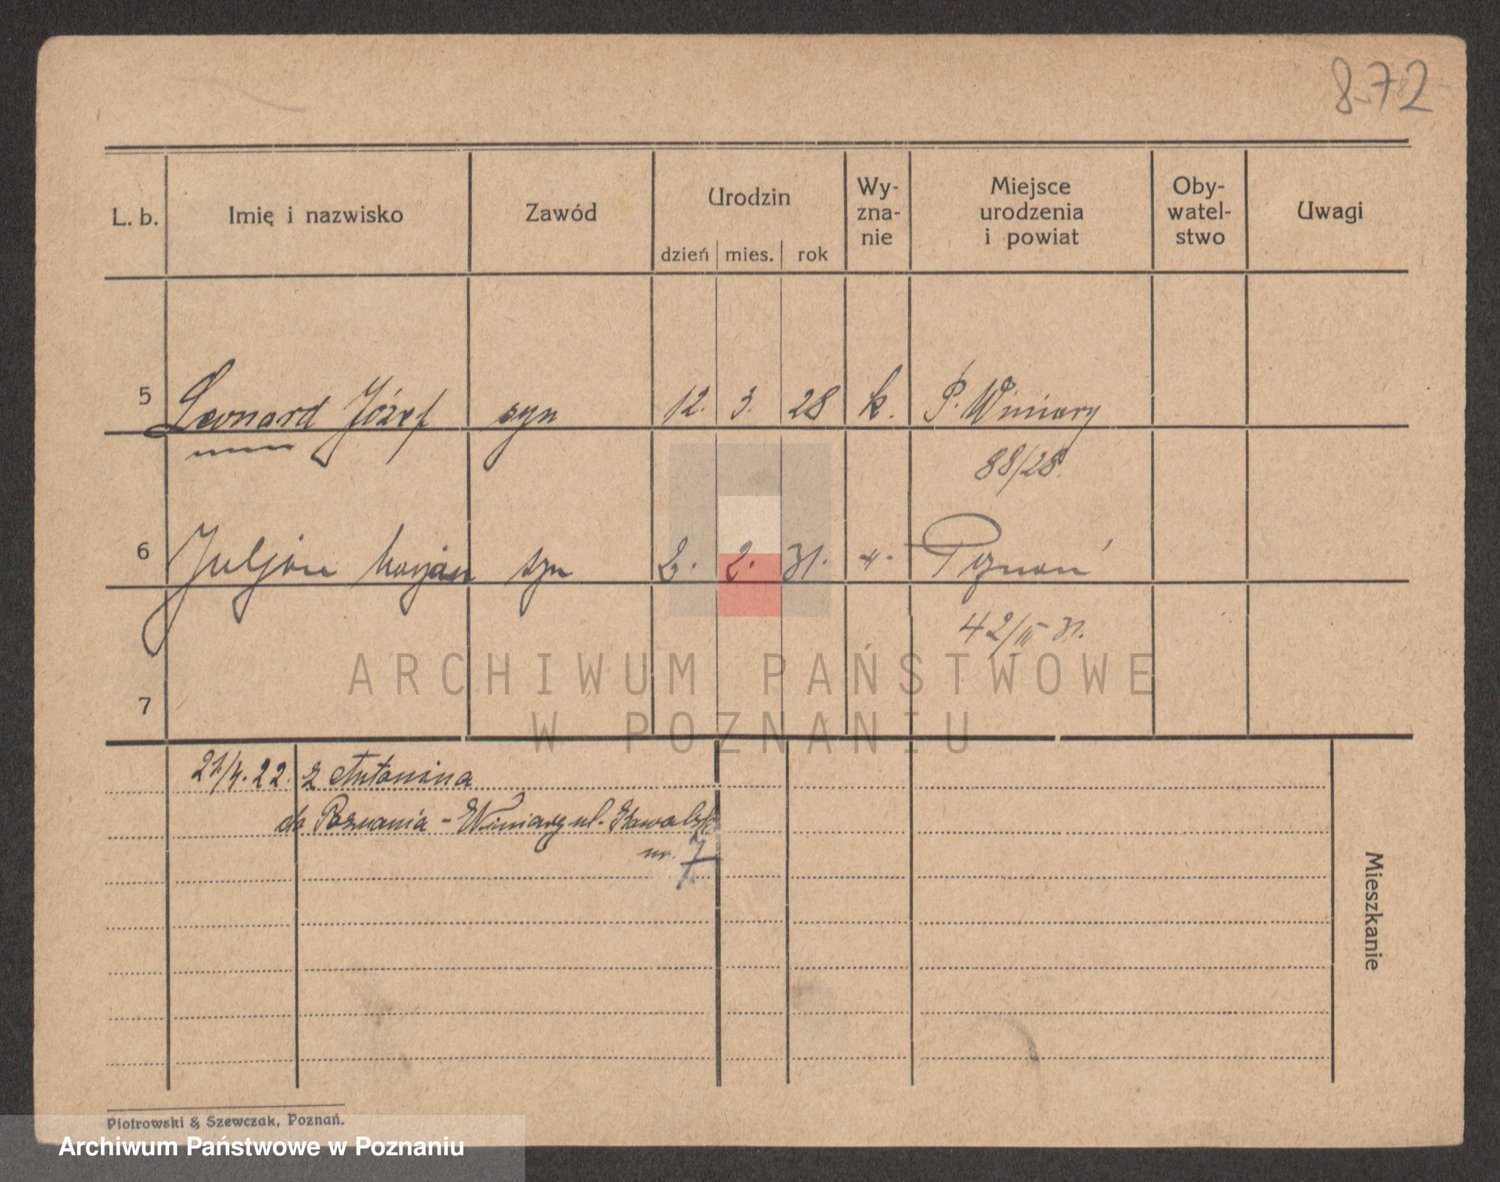 8-72
L. b. Imię i nazwisko Zawód Urodzin Wy- Miejsce Oby- Uwagi
zna- urodzenia watel-
nie i powiat stwo
dzień mies. rok
5 Leonard Józef syn 12. 3. 28 k. P. Winiary
88/28.
6 Juljan Marjan syn 2. 2. 31. " Poznań
42/II 31.
ARCHIWUM PAŃSTWOWE
W POZNANIU
7
21/4.22. z Antonina
do Poznania - Winiary ul.
nr. 7
Mieszkanie
Piotrowski & Szewczak, Poznań.
Archiwum Państwowe w Poznaniu